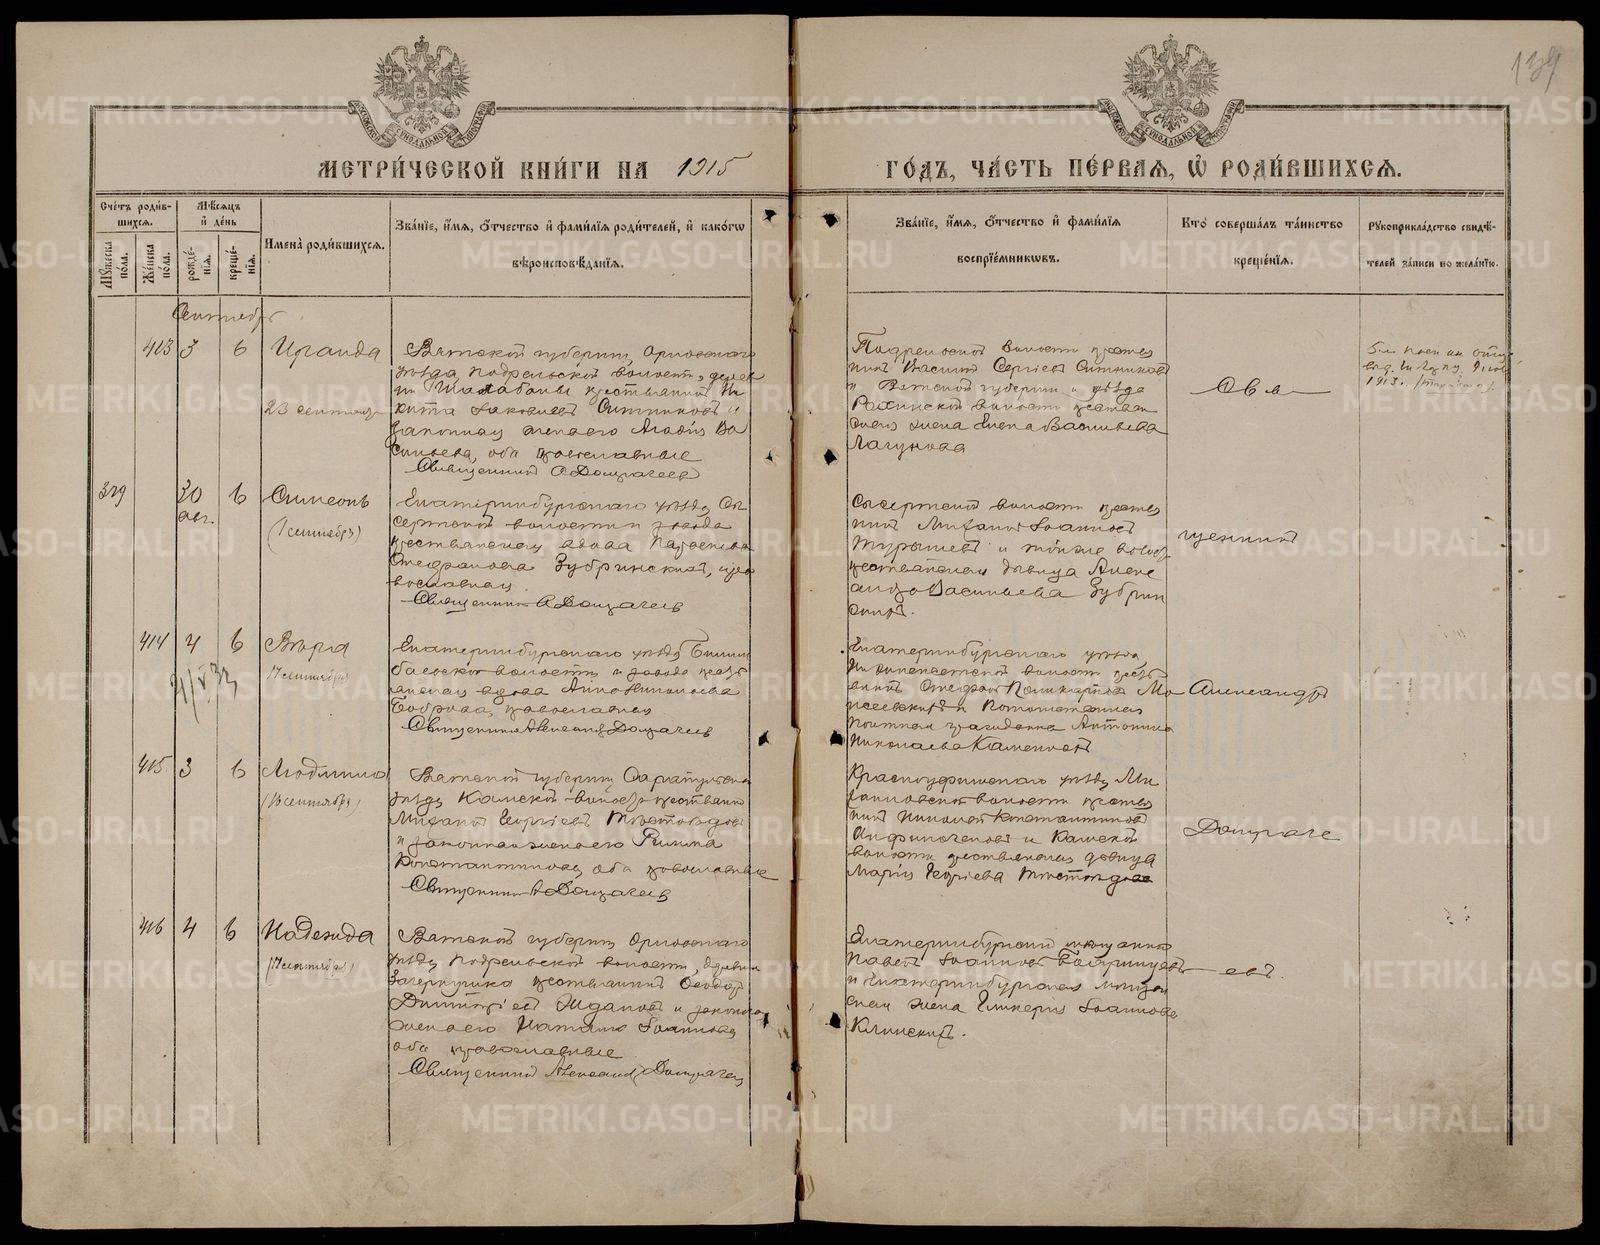 139
МЕТРИ́ЧЕСКОЙ КНИ́ГИ НА 1915
ГО́ДЪ, ЧА́СТЬ ПЕ́РВАЯ, Ѡ҆ РОДИ́ВШИХСЯ.
Сче́тъ роди́в-
шихся.
Мѣ́сяцъ
и҆ де́нь
Мꙋ́жеска по́ла.
Же́нска по́ла.
рожде́-
нїѧ.
креще́-
нїѧ.
И҆мена̀ роди́вшихся.
Зва́нїе, и҆́мѧ, ѻ҆́тчество и҆ фами́лїѧ роди́телей, и҆ како́гѡ
вѣроисповѣ́данїѧ.
Зва́нїе, и҆́мѧ, ѻ҆́тчество и҆ фами́лїѧ
воспрїе́мникѡвъ.
Кто̀ соверша́лъ та́инство
креще́нїѧ.
Рꙋкоприкла́дство свидѣ́-
телей за́писи по жела́нїю.
Сентябрь
413 3 6 Ираида
23 сентября
Вятской губерніи, Орловскаго
уѣзда Подрельской волости, дерев
ни Шалабаны крестьянинъ Ни
кита Іаковлевъ Ситниковъ и
законная жена его Агафія Ва
сильева, оба православные
Священникъ А. Домрачеевъ
Подрельской волости крестья
нинъ Василій Сергіевъ Ситниковъ
и Вятской губерніи и уѣзда
волости крестьян
жена Елена Васильева
Лагунова
Свя
1913.
329 30 6 Симеонъ
авг.
(1 сентября)
Екатеринбургскаго уѣзда Сы
сертской волости и завода
крестьянская вдова Параскева
Стефанова Зубринскихъ, пра
вославная
Священникъ А Домрачеевъ
Сысертской волости крестья
нинъ Михаилъ Іоанновъ
Турышевъ и той же волос
крестьянская дѣвица Алекс
андра Васильева Зубрин
скихъ.
щенникъ
414 4 6 Вѣра
17 сентября
Екатеринбургскаго уѣзда Билим
баевской волости и завода крест
янская вдова Анна Николаева
Боброва, православная
Священникъ Александръ Домрачеевъ
Екатеринбургскаго уѣзда
волости крест
янинъ Стефанъ Поликарповъ Мо
исеевскихъ и Потомственная
Почетная гражданка Антонина
Николаева Каменская
Александръ
415 3 6 Людмила
(16 сентября)
Вятской губерніи Сарапульскаго
уѣзда Камской волости крестьянинъ
Михаилъ Георгіевъ
и законная жена его Римма
Константинова оба православные
Священникъ А Домрачеевъ
Красноуфимскаго уѣзда Ми
хайловской волости крестья
нинъ Николай Константиновъ
и Камской
волости крестьянская дѣвица
Марія Георгіева
Домраче
416 4 6 Надежда
(17 сентября)
Вятской губерніи Орловскаго
уѣзда Подрельской волости, деревни
крестьянинъ Ѳеодоръ
Димитріевъ Ждановъ и законная
жена его Наталія Іоаннова
оба православные
Священникъ Александръ Домрачеевъ
Екатеринбургскій мѣщанинъ
Павелъ Іоанновъ
и Екатеринбургская мѣщан
ская жена Гликерія Іоаннова
Клинскихъ.
евъ.
METRIKI.GASO-URAL.RU